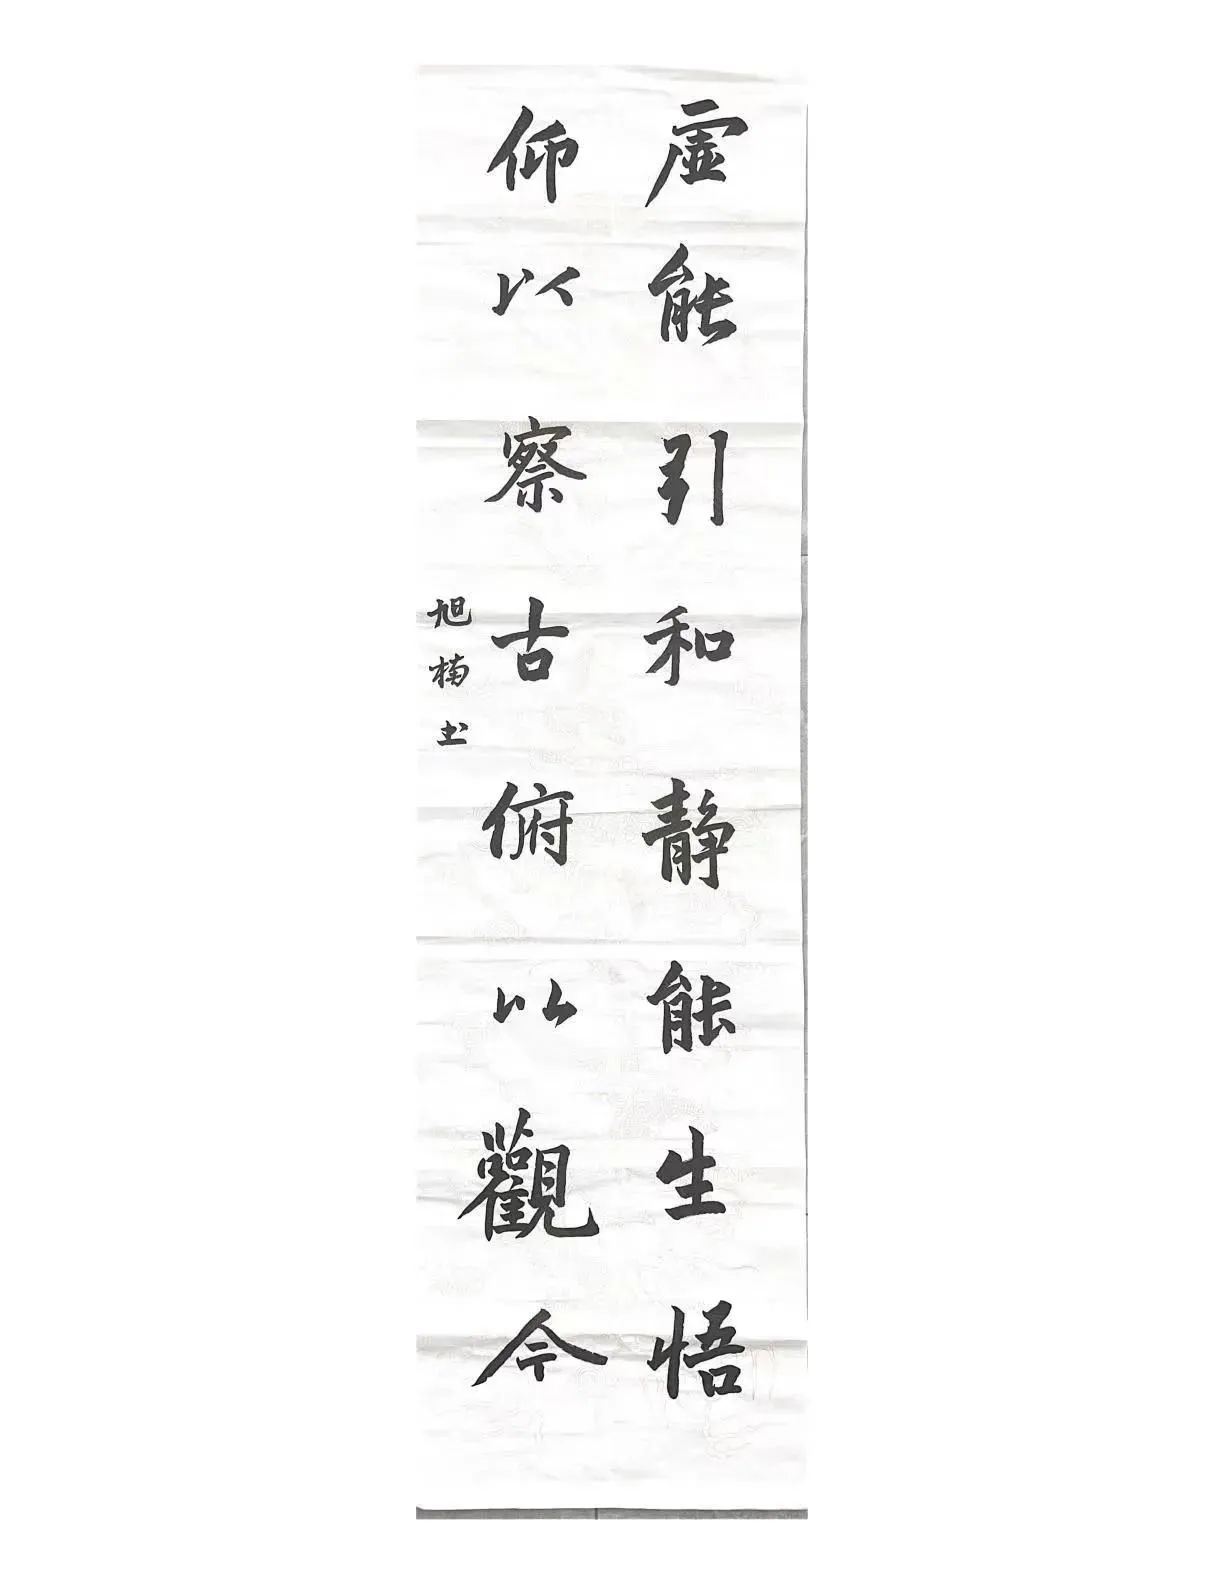 虚能引和静能生悟
仰以察古俯以觀今
旭楠书